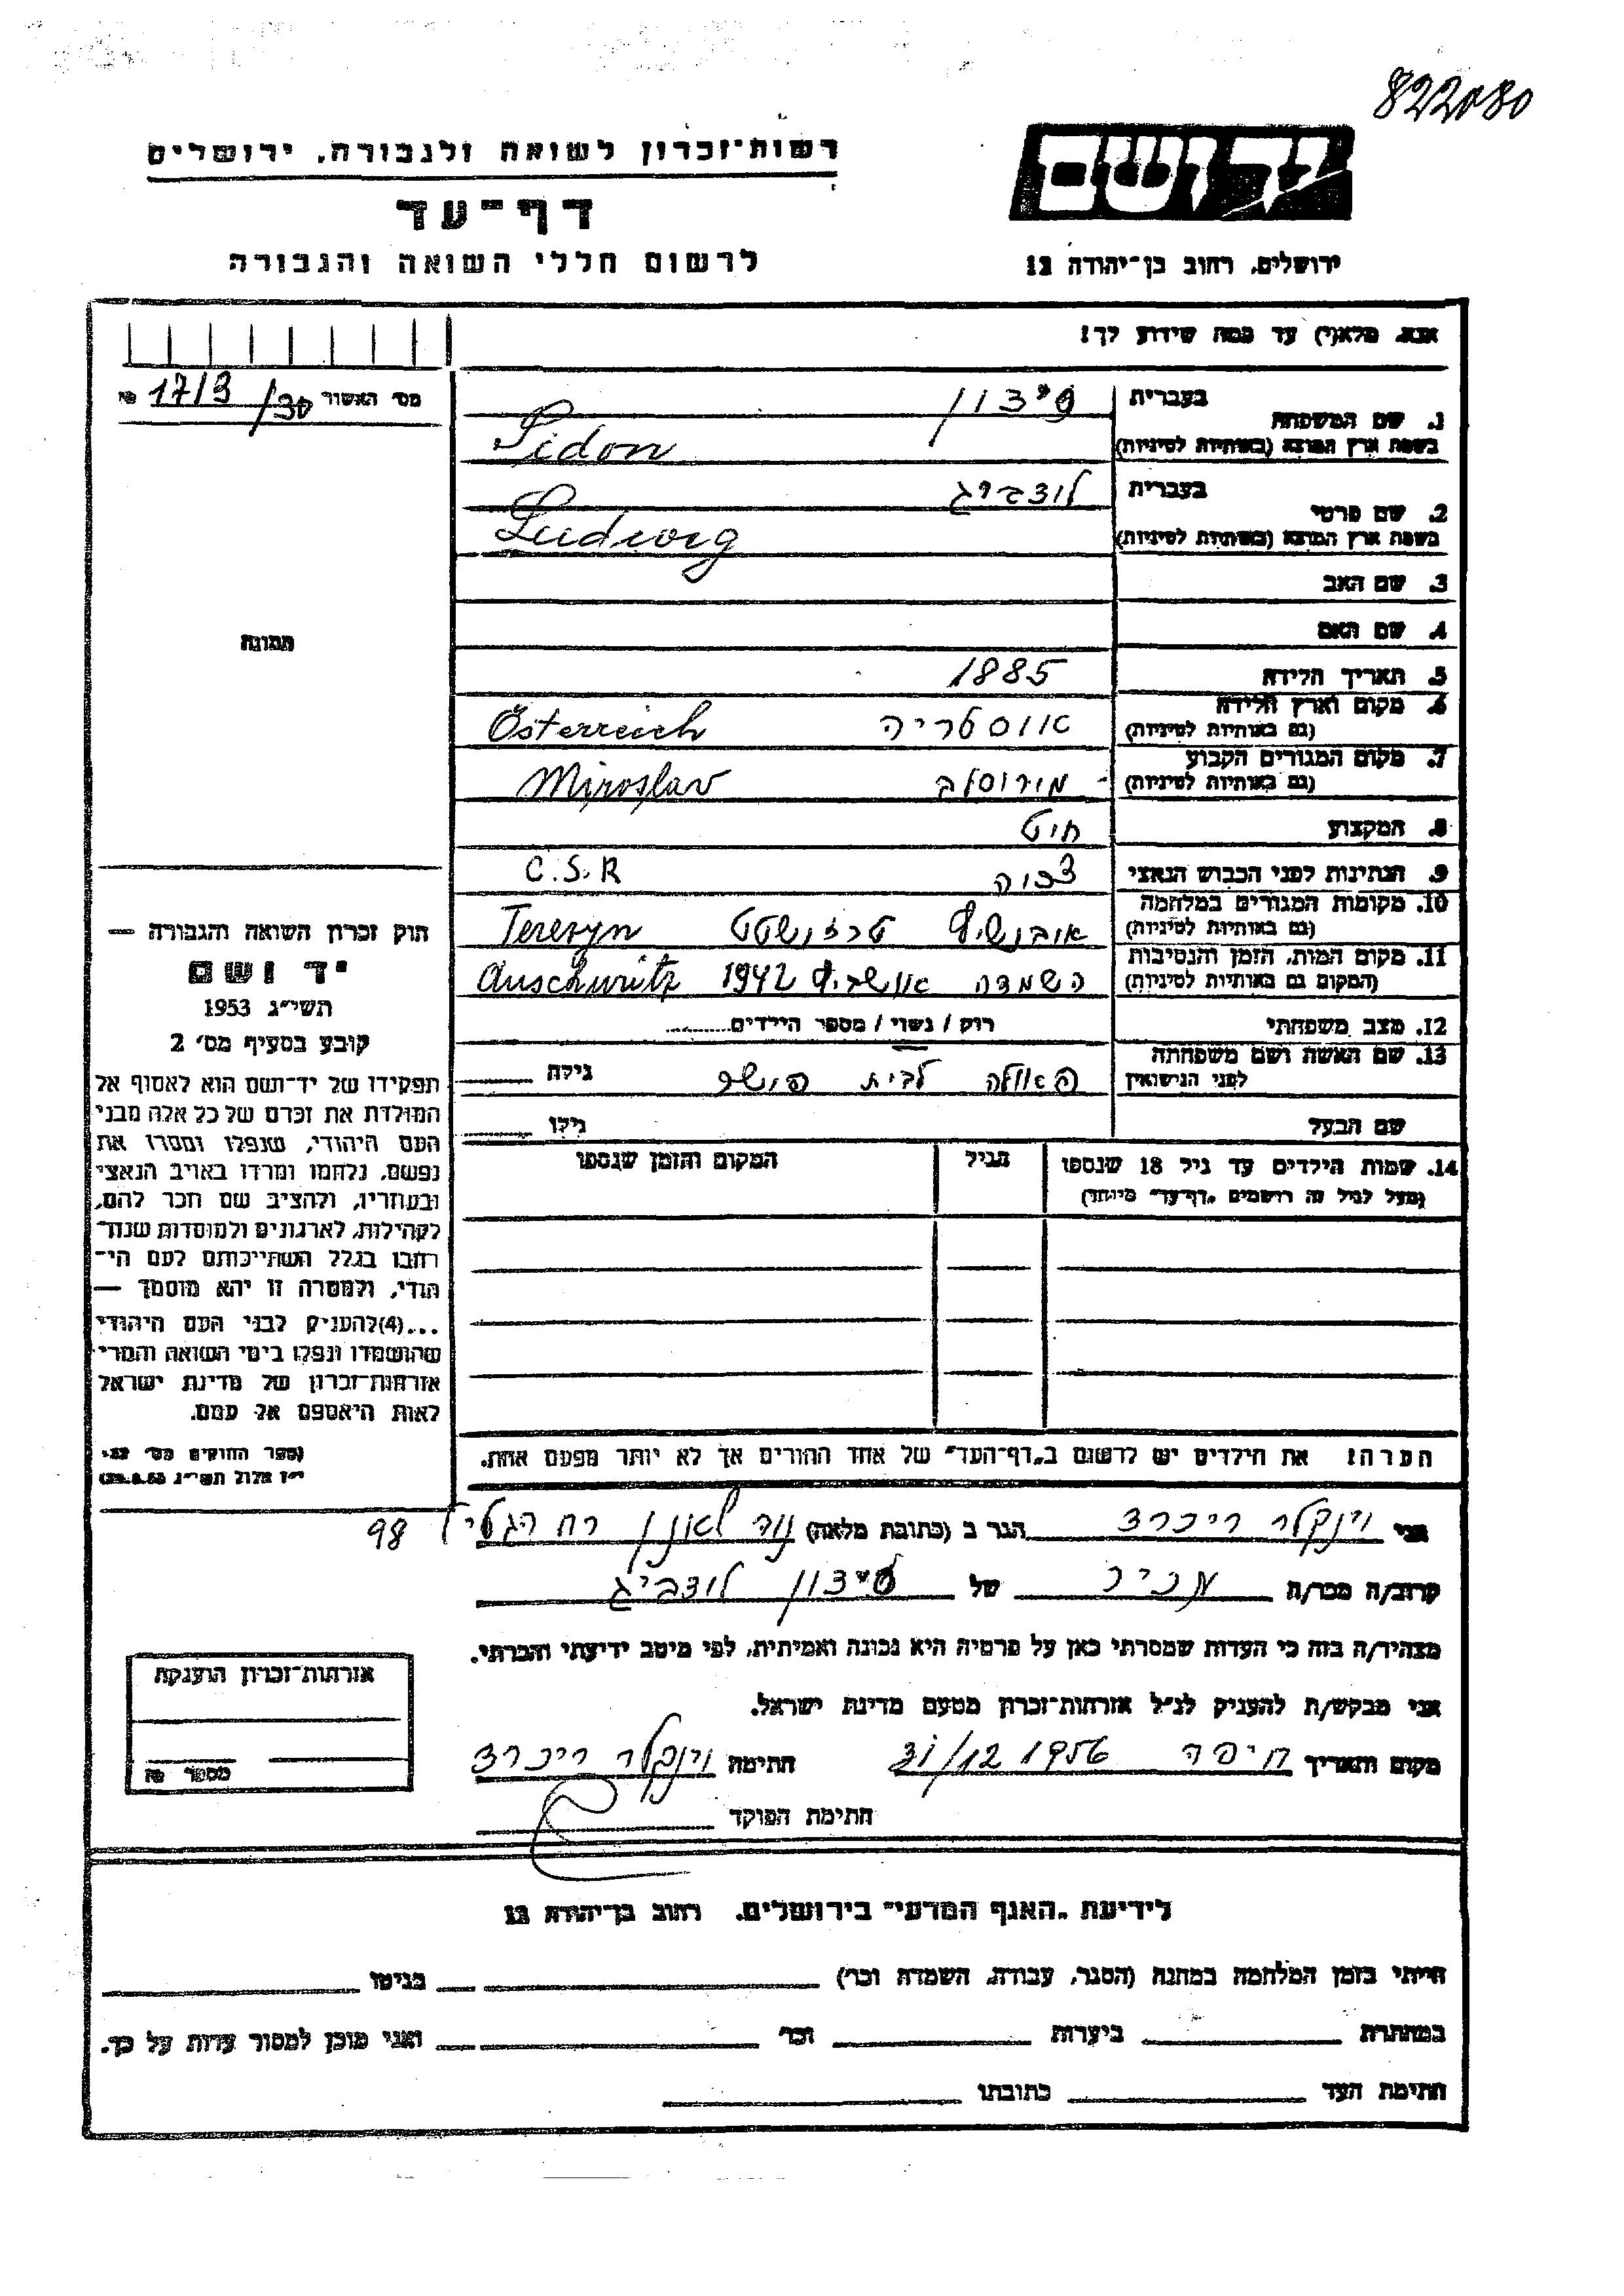 822080
רשות־זכרון לשואה ולגבורה, ירושלים
דף־עד
לרשום חללי השואה והגבורה
יד ושם
ירושלים, רחוב בן־יהודה 12
אנא, מלא(י) עד כמה שידוע לך!
מס׳ האשור № 17/3/30
תמונה
1. שם המשפחה
בעברית סידון
בשפת ארץ המוצא (באותיות לטיניות) Sidon
2. שם פרטי
בעברית לודביג
בשפת ארץ המוצא (באותיות לטיניות) Ludwig
3. שם האב
4. שם האם
5. תאריך הלידה 1885
6. מקום וארץ הלידה אוסטריה Österreich
(גם באותיות לטיניות)
7. מקום המגורים הקבוע מירוסלב Miroslav
(גם באותיות לטיניות)
8. המקצוע חיט
9. הנתינות לפני הכבוש הנאצי C.S.R
10. מקומות המגורים במלחמה טרזנשטט Teresyn
(גם באותיות לטיניות)
11. מקום המות, הזמן והנסיבות השמדה אושביץ 1942 Auschwitz
(המקום גם באותיות לטיניות)
12. מצב משפחתי רווק / נשוי / מספר הילדים
13. שם האשה ושם משפחתה
לפני הנישואין פאולה לבית גילה
שם הבעל גילו
14. שמות הילדים עד גיל 18 שנספו הגיל המקום והזמן שנספו
(מעל לגיל זה רושמים „דף־עד״ מיוחד)
הערה: את הילדים יש לרשום ב„דף־העד״ של אחד ההורים אך לא יותר מפעם אחת.
חוק זכרון השואה והגבורה —
יד ושם
תשי״ג 1953
קובע בסעיף מס׳ 2
תפקידו של יד־ושם הוא לאסוף אל
המולדת את זכרם של כל אלה מבני
העם היהודי, שנפלו ומסרו את
נפשם, נלחמו ומרדו באויב הנאצי
ובעוזריו, ולהציב שם וזכר להם,
לקהילות, לארגונים ולמוסדות שנח־
רבו בגלל השתייכותם לעם הי־
הודי, ולמטרה זו יהא מוסמך —
...(4) להעניק לבני העם היהודי
שהושמדו ונפלו בימי השואה והמרי
אזרחות־זכרון של מדינת ישראל
לאות היאספם אל עמם.
(ספר החוקים מס׳ 132.
י״ז אלול תשי״ג 28.8.53)
אני וינקלר ריכרד הגר ב (כתובת מלאה) 98
קרוב/ה מכר/ה מכיר של סידון לודביג
מצהיר/ה בזה כי העדות שמסרתי כאן על פרטיה היא נכונה ואמיתית, לפי מיטב ידיעתי והכרתי.
אני מבקש/ת להעניק לנ״ל אזרחות־זכרון מטעם מדינת ישראל.
מקום ותאריך חיפה 1956 חתימה וינקלר ריכרד
חתימת הפוקד
אזרחות־זכרון הוענקה
מספר №
לידיעת „האגף המדעי״ בירושלים, רחוב בן־יהודה 12
הייתי בזמן המלחמה במחנה (הסגר, עבודה, השמדה וכו׳) בגיטו
במחתרת ביערות וכו׳ ואני מוכן למסור עדות על כך.
חתימת העד כתובתו